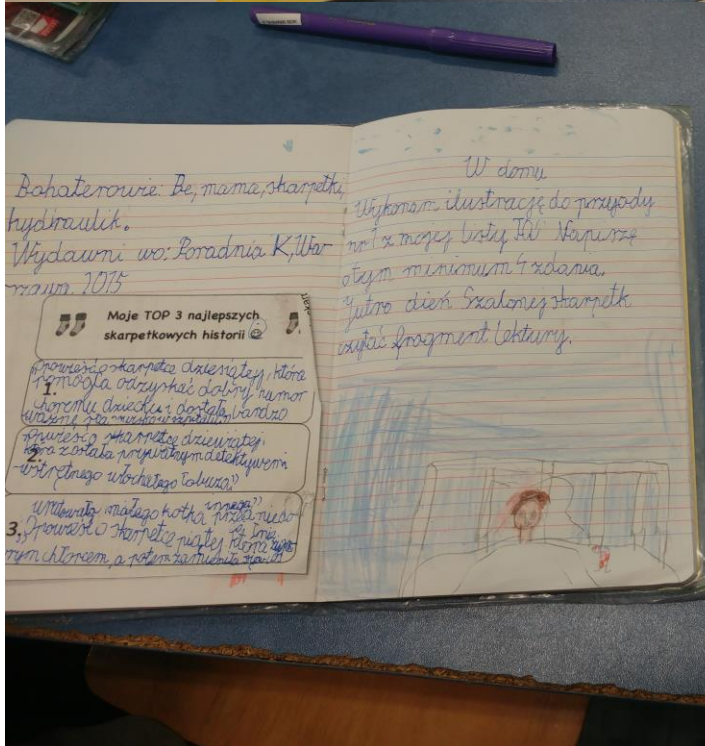 Bohaterowie: Be, mama, skarpetki,
hydraulik.
Wydawni wo: Poradnia K, War
szawa. 2015
Moje TOP 3 najlepszych
skarpetkowych historii
1.
Opowieść o skarpetce dziesiątej, która
pomogła odzyskać dobry humor
choremu dziecku i dostała bardzo
ważną
2.
Opowieść o skarpetce dziewiątej,
która została prywatnym detektywem
wstrętnego włochatego łobuza"
3.
uratowała małego kotka przed niedo
"Opowieść o skarpetce piątej, która
rym chłopcem, a potem zamieniła
W domu
Wykonam ilustrację do przygody
nr 1 z mojej listy Napiszę
o tym minimum 4 zdania.
Jutro dzień Szalonej skarpetk
czytać fragment lektury.